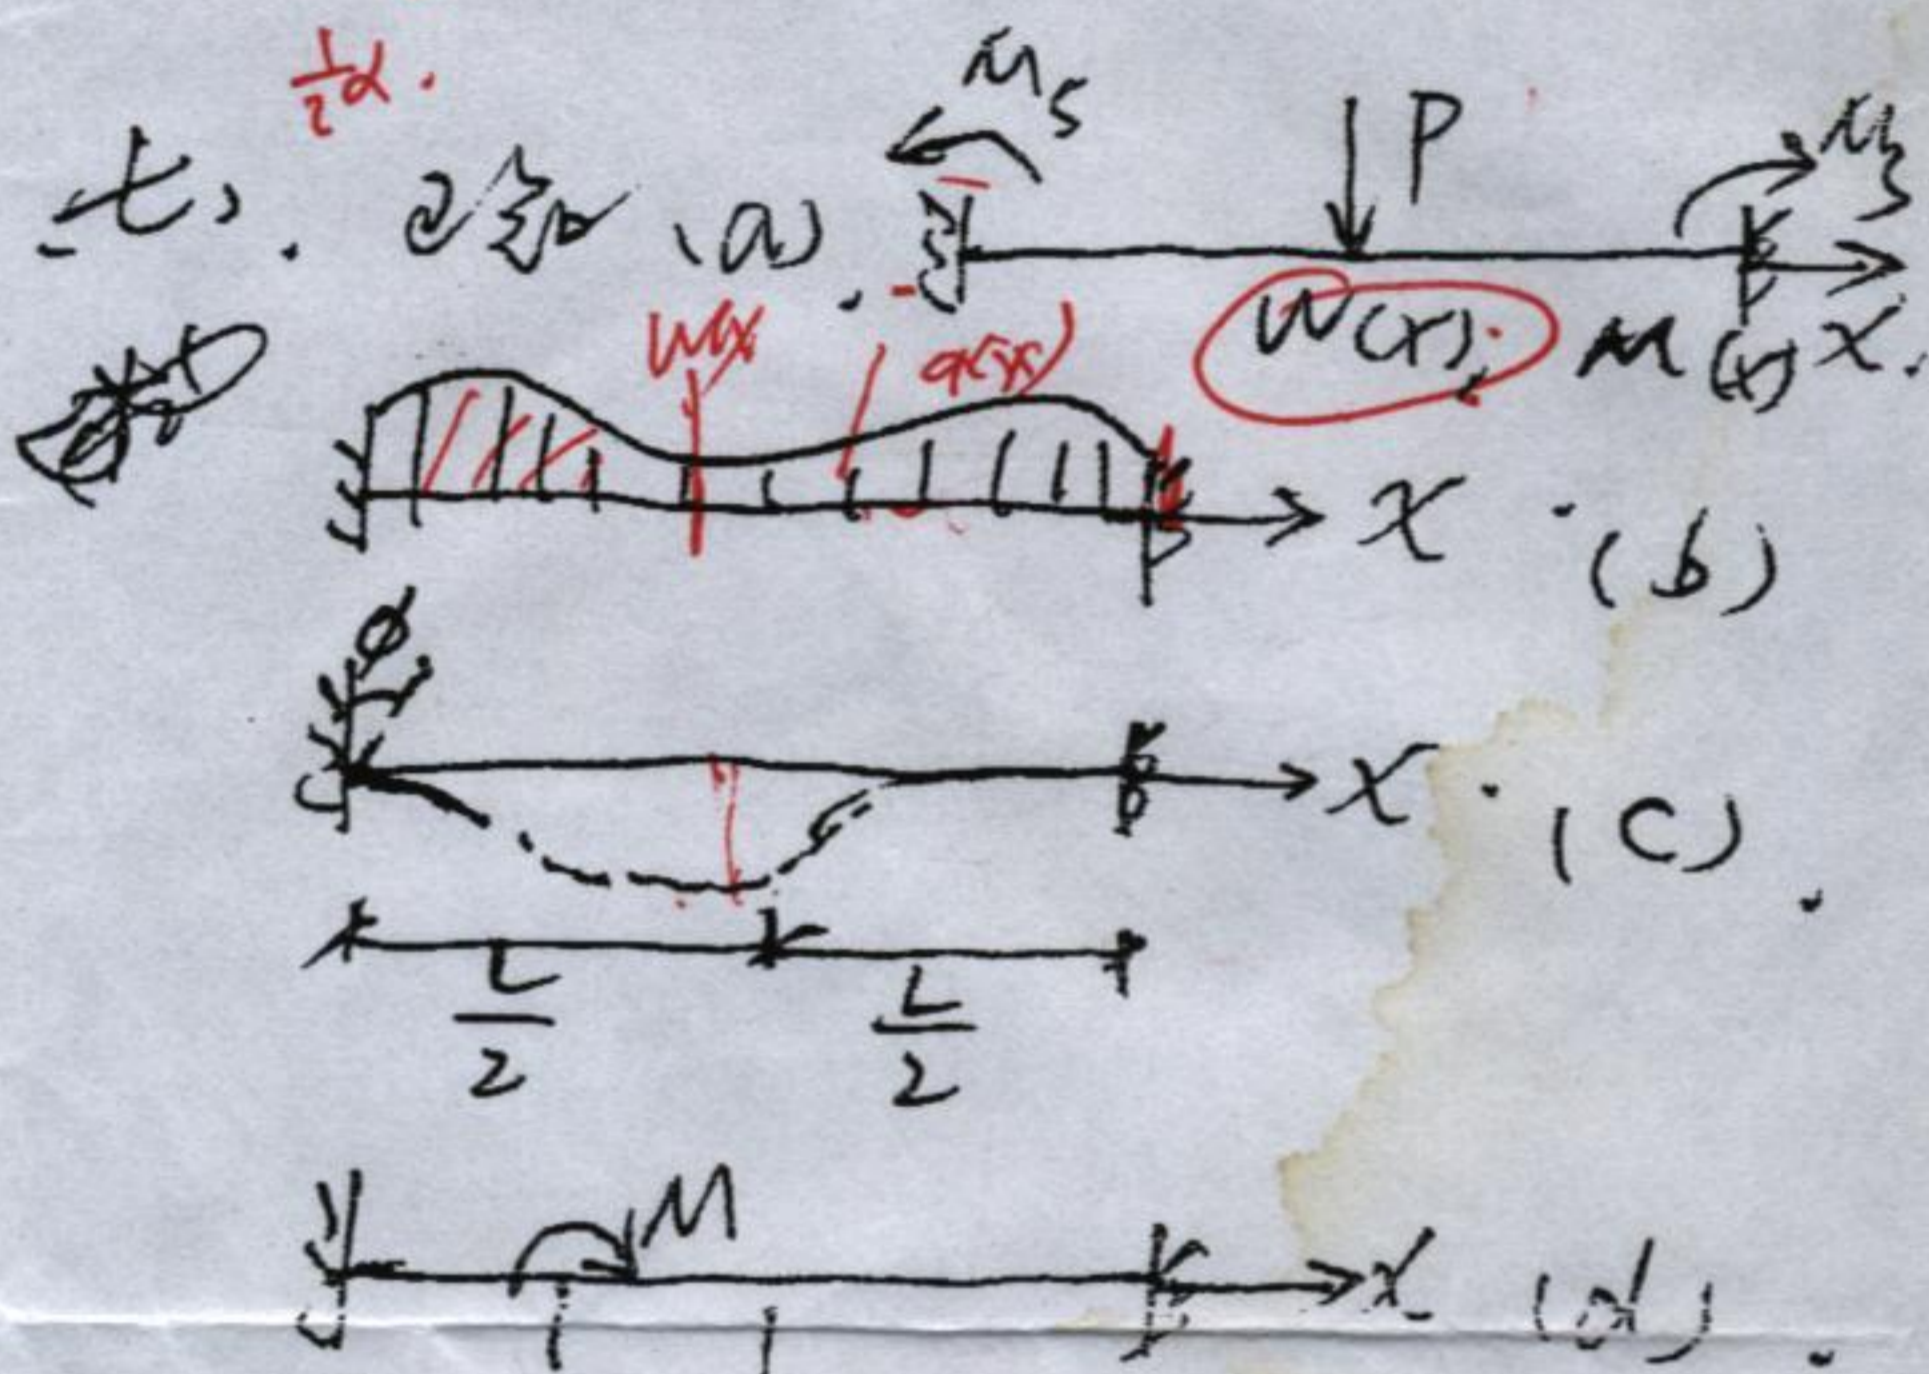 1/2 α.
七、 已知 (a). M_S P M_S
W(x), M(x) X.
W(x) q(x)
X (b)
φ
X (c).
L/2 L/2
M
x (d).